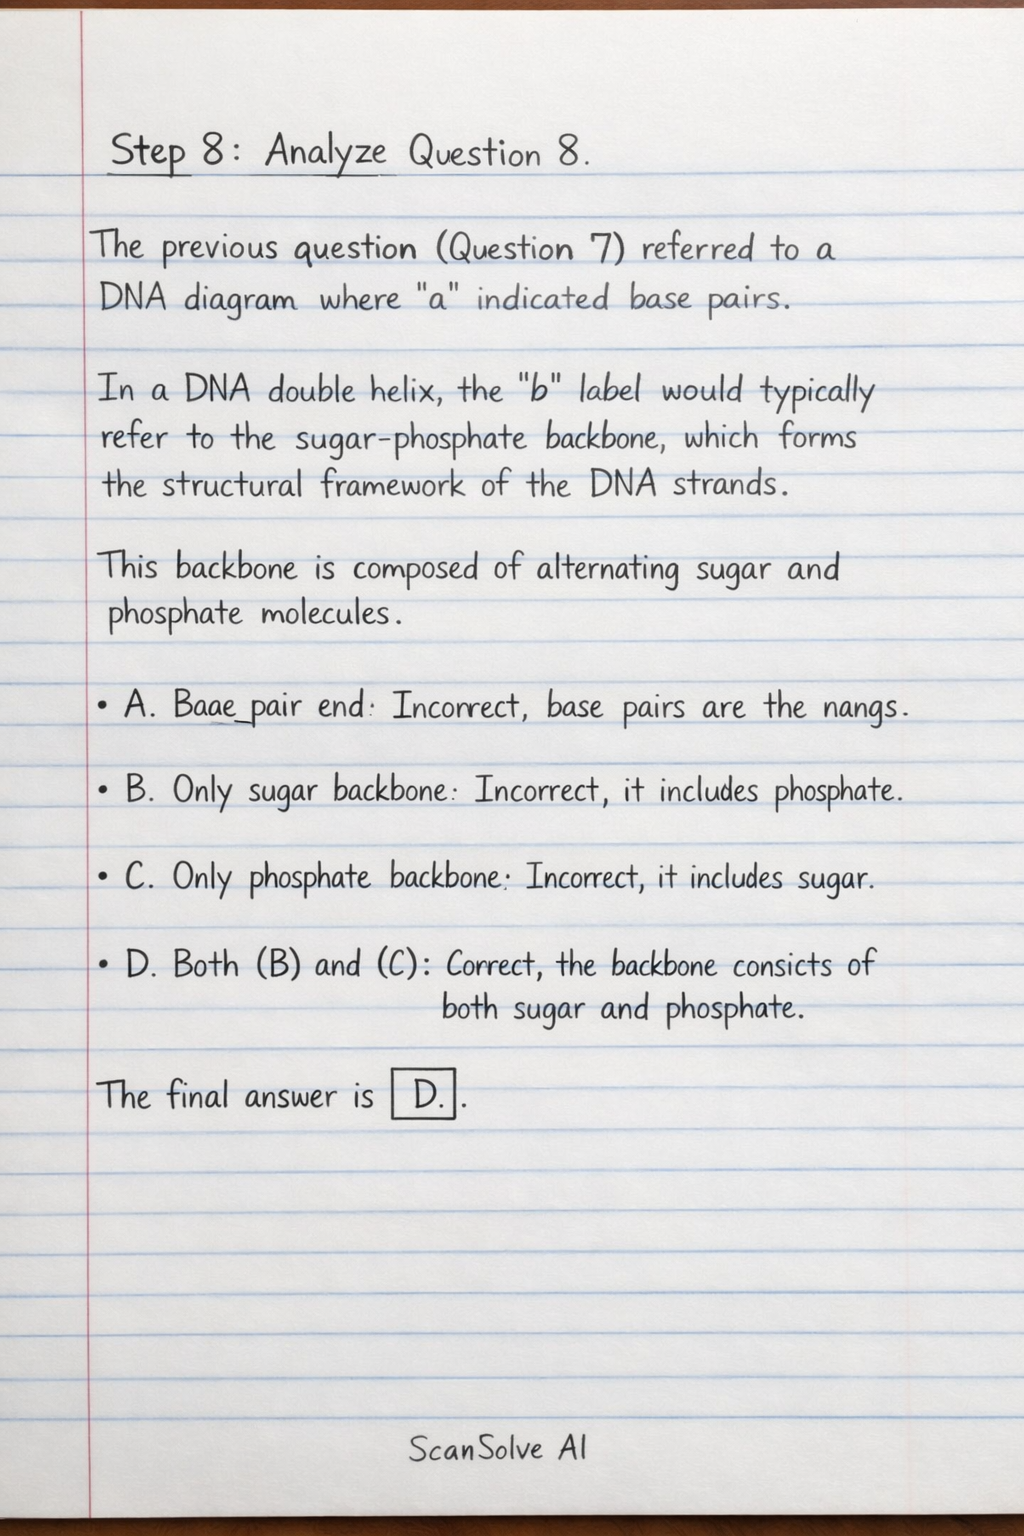 Step 8: Analyze Question 8.
The previous question (Question 7) referred to a
DNA diagram where "a" indicated base pairs.
In a DNA double helix, the "b" label would typically
refer to the sugar-phosphate backbone, which forms
the structural framework of the DNA strands.
This backbone is composed of alternating sugar and
phosphate molecules.
• A. Baae_pair end: Incorrect, base pairs are the nangs.
• B. Only sugar backbone: Incorrect, it includes phosphate.
• C. Only phosphate backbone: Incorrect, it includes sugar.
• D. Both (B) and (C): Correct, the backbone consicts of
both sugar and phosphate.
The final answer is D..
ScanSolve AI